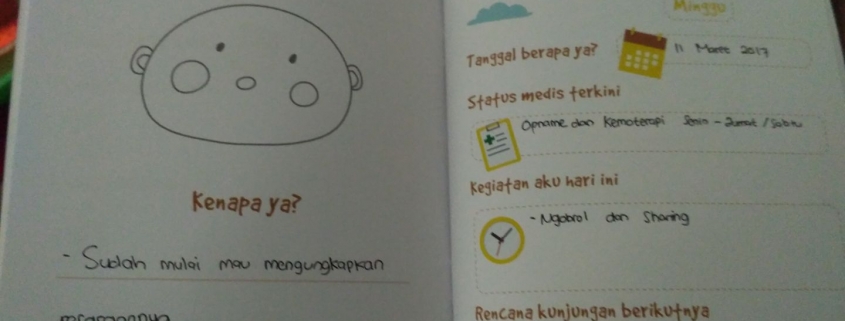 Kenapa ya?
- Sudah mulai mau mengungkapkan
perasaannya
Minggu
Tanggal berapa ya?
11 Maret 2017
Status medis terkini
Opname dan Kemoterapi Senin - Jumat / Sabtu
Kegiatan aku hari ini
- Ngobrol dan Sharing
Rencana kunjungan berikutnya